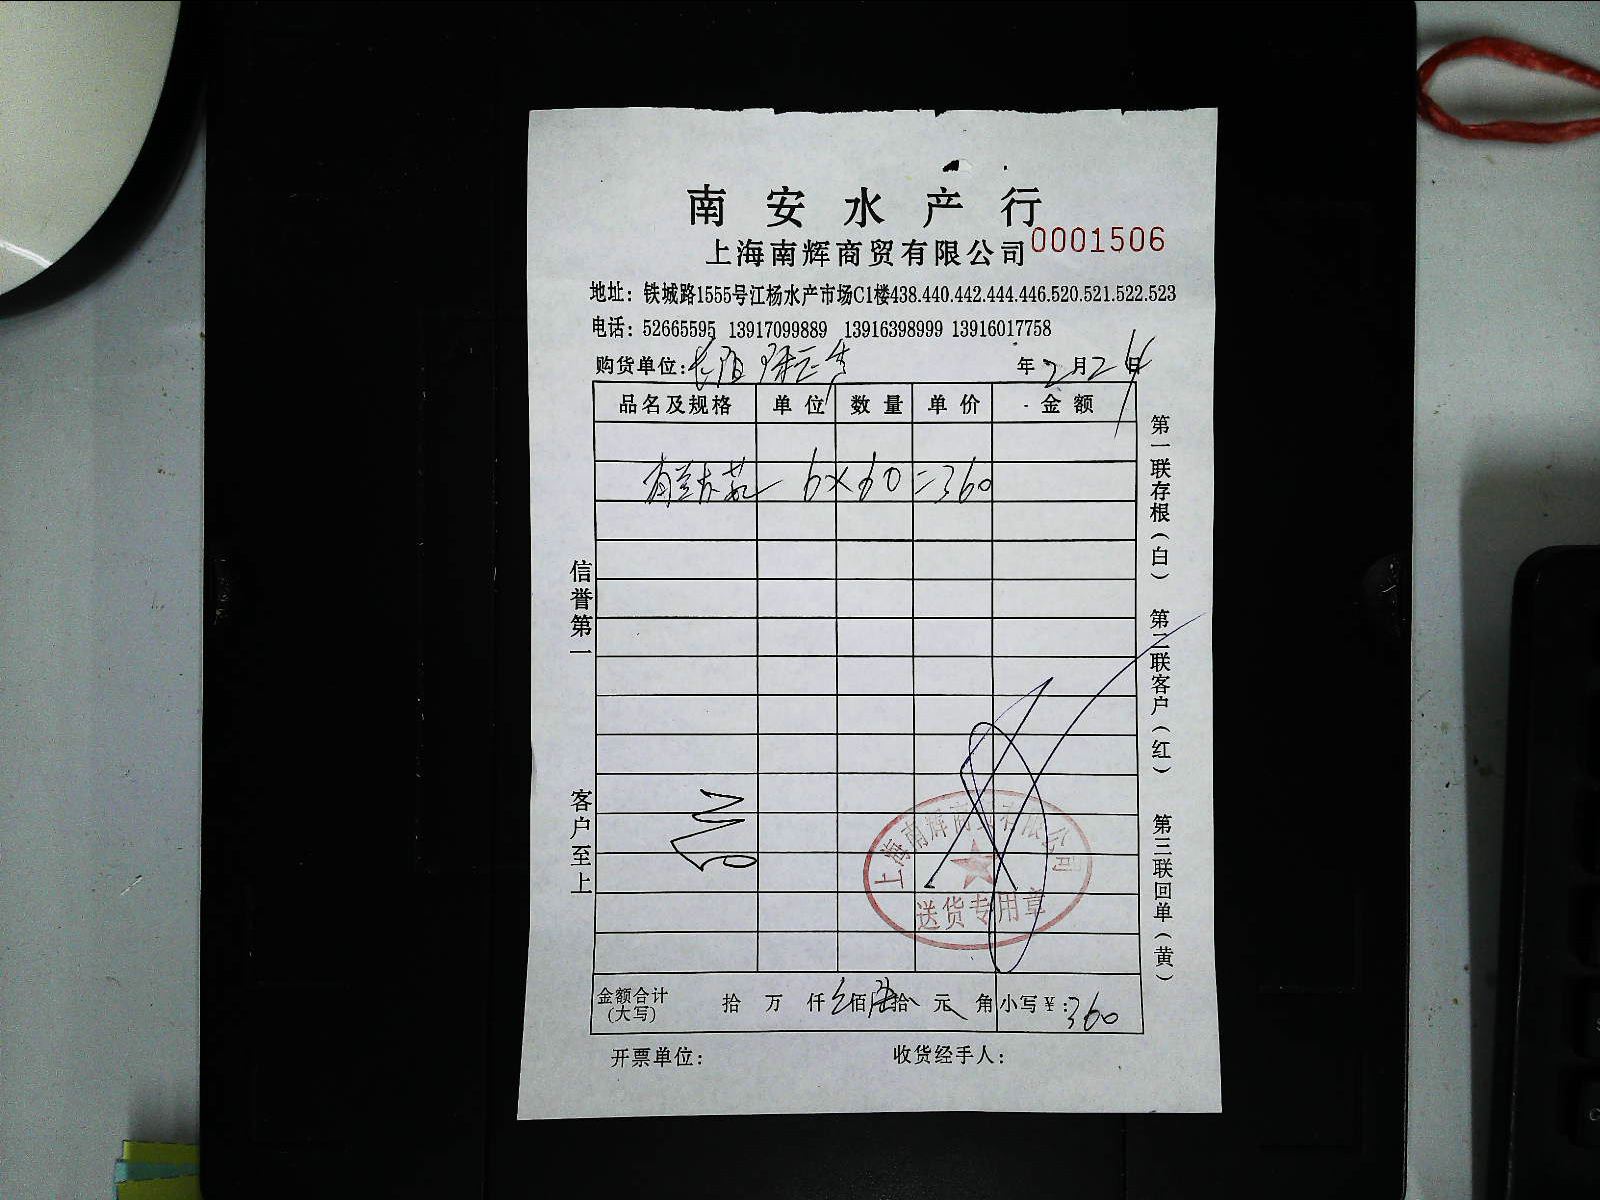 南安水产行
上海南辉商贸有限公司 0001506
地址：铁城路1555号江杨水产市场C1楼438.440.442.444.446.520.521.522.523
电话：52665595 13917099889 13916398999 13916017758
购货单位： 年2月24日
品名及规格 单位 数量 单价 金额
6×60=360
信誉第一
客户至上
第一联存根（白）
第二联客户（红）
第三联回单（黄）
上海南辉商贸有限公司
送货专用章
金额合计（大写） 拾 万 仟 佰 拾 元 角 小写￥：360
开票单位： 收货经手人：